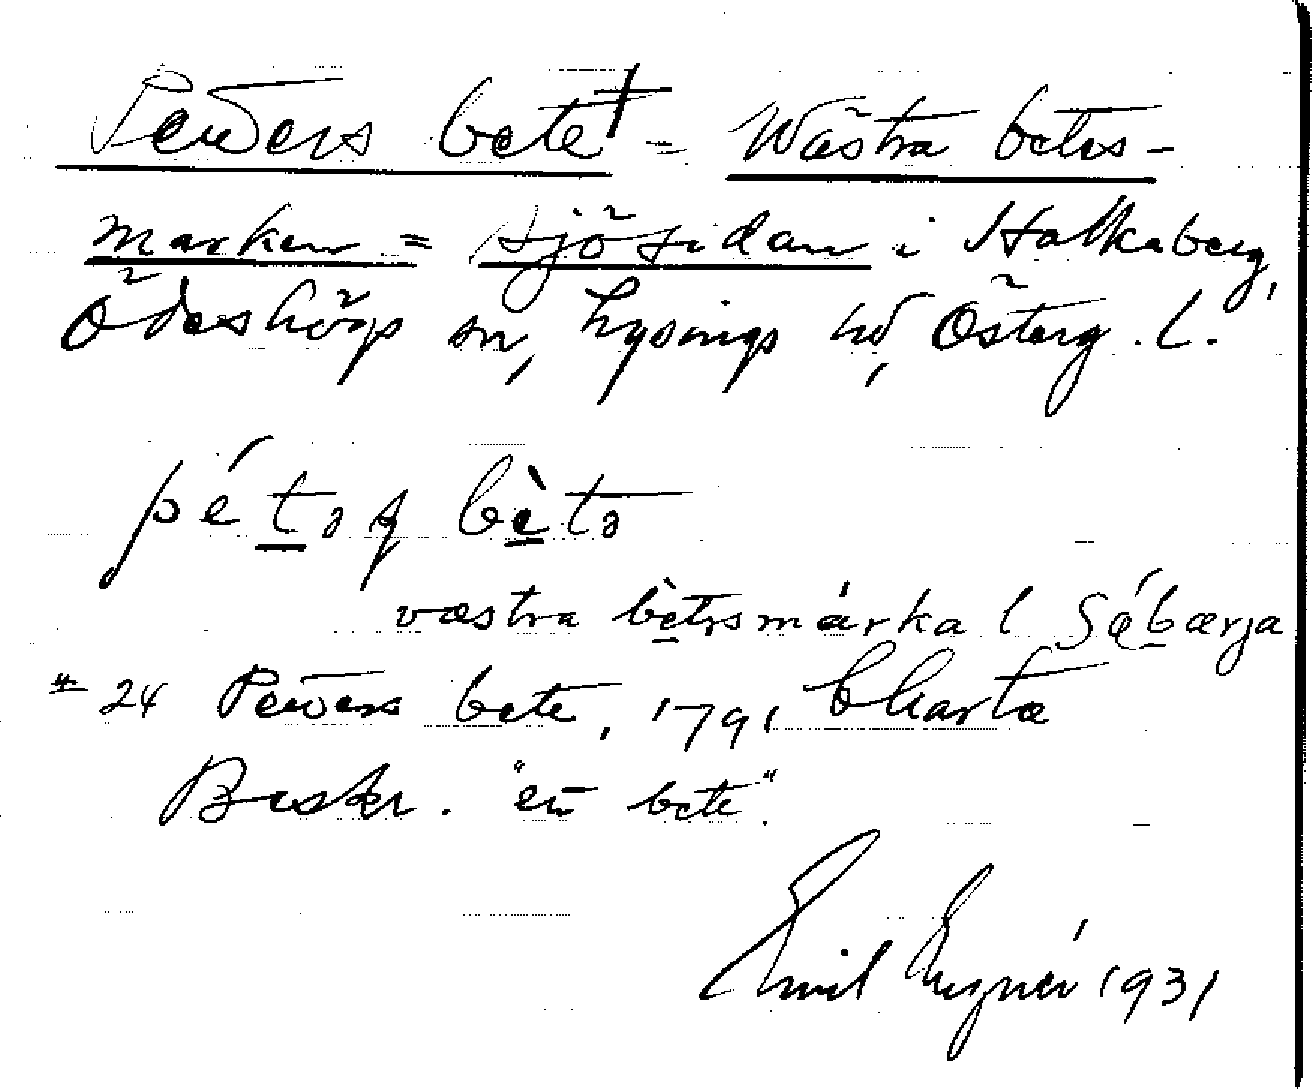 Peders bete† = Wästra betes-
marken = sjösidan i Halkaberg,
Ödeshögs sn, Lysings hd, Österg. l.
bètə
væstra bètəsmárka
* 24 Peders bete, 1791 Charta
Beskr. "en bete".
Emil 1931